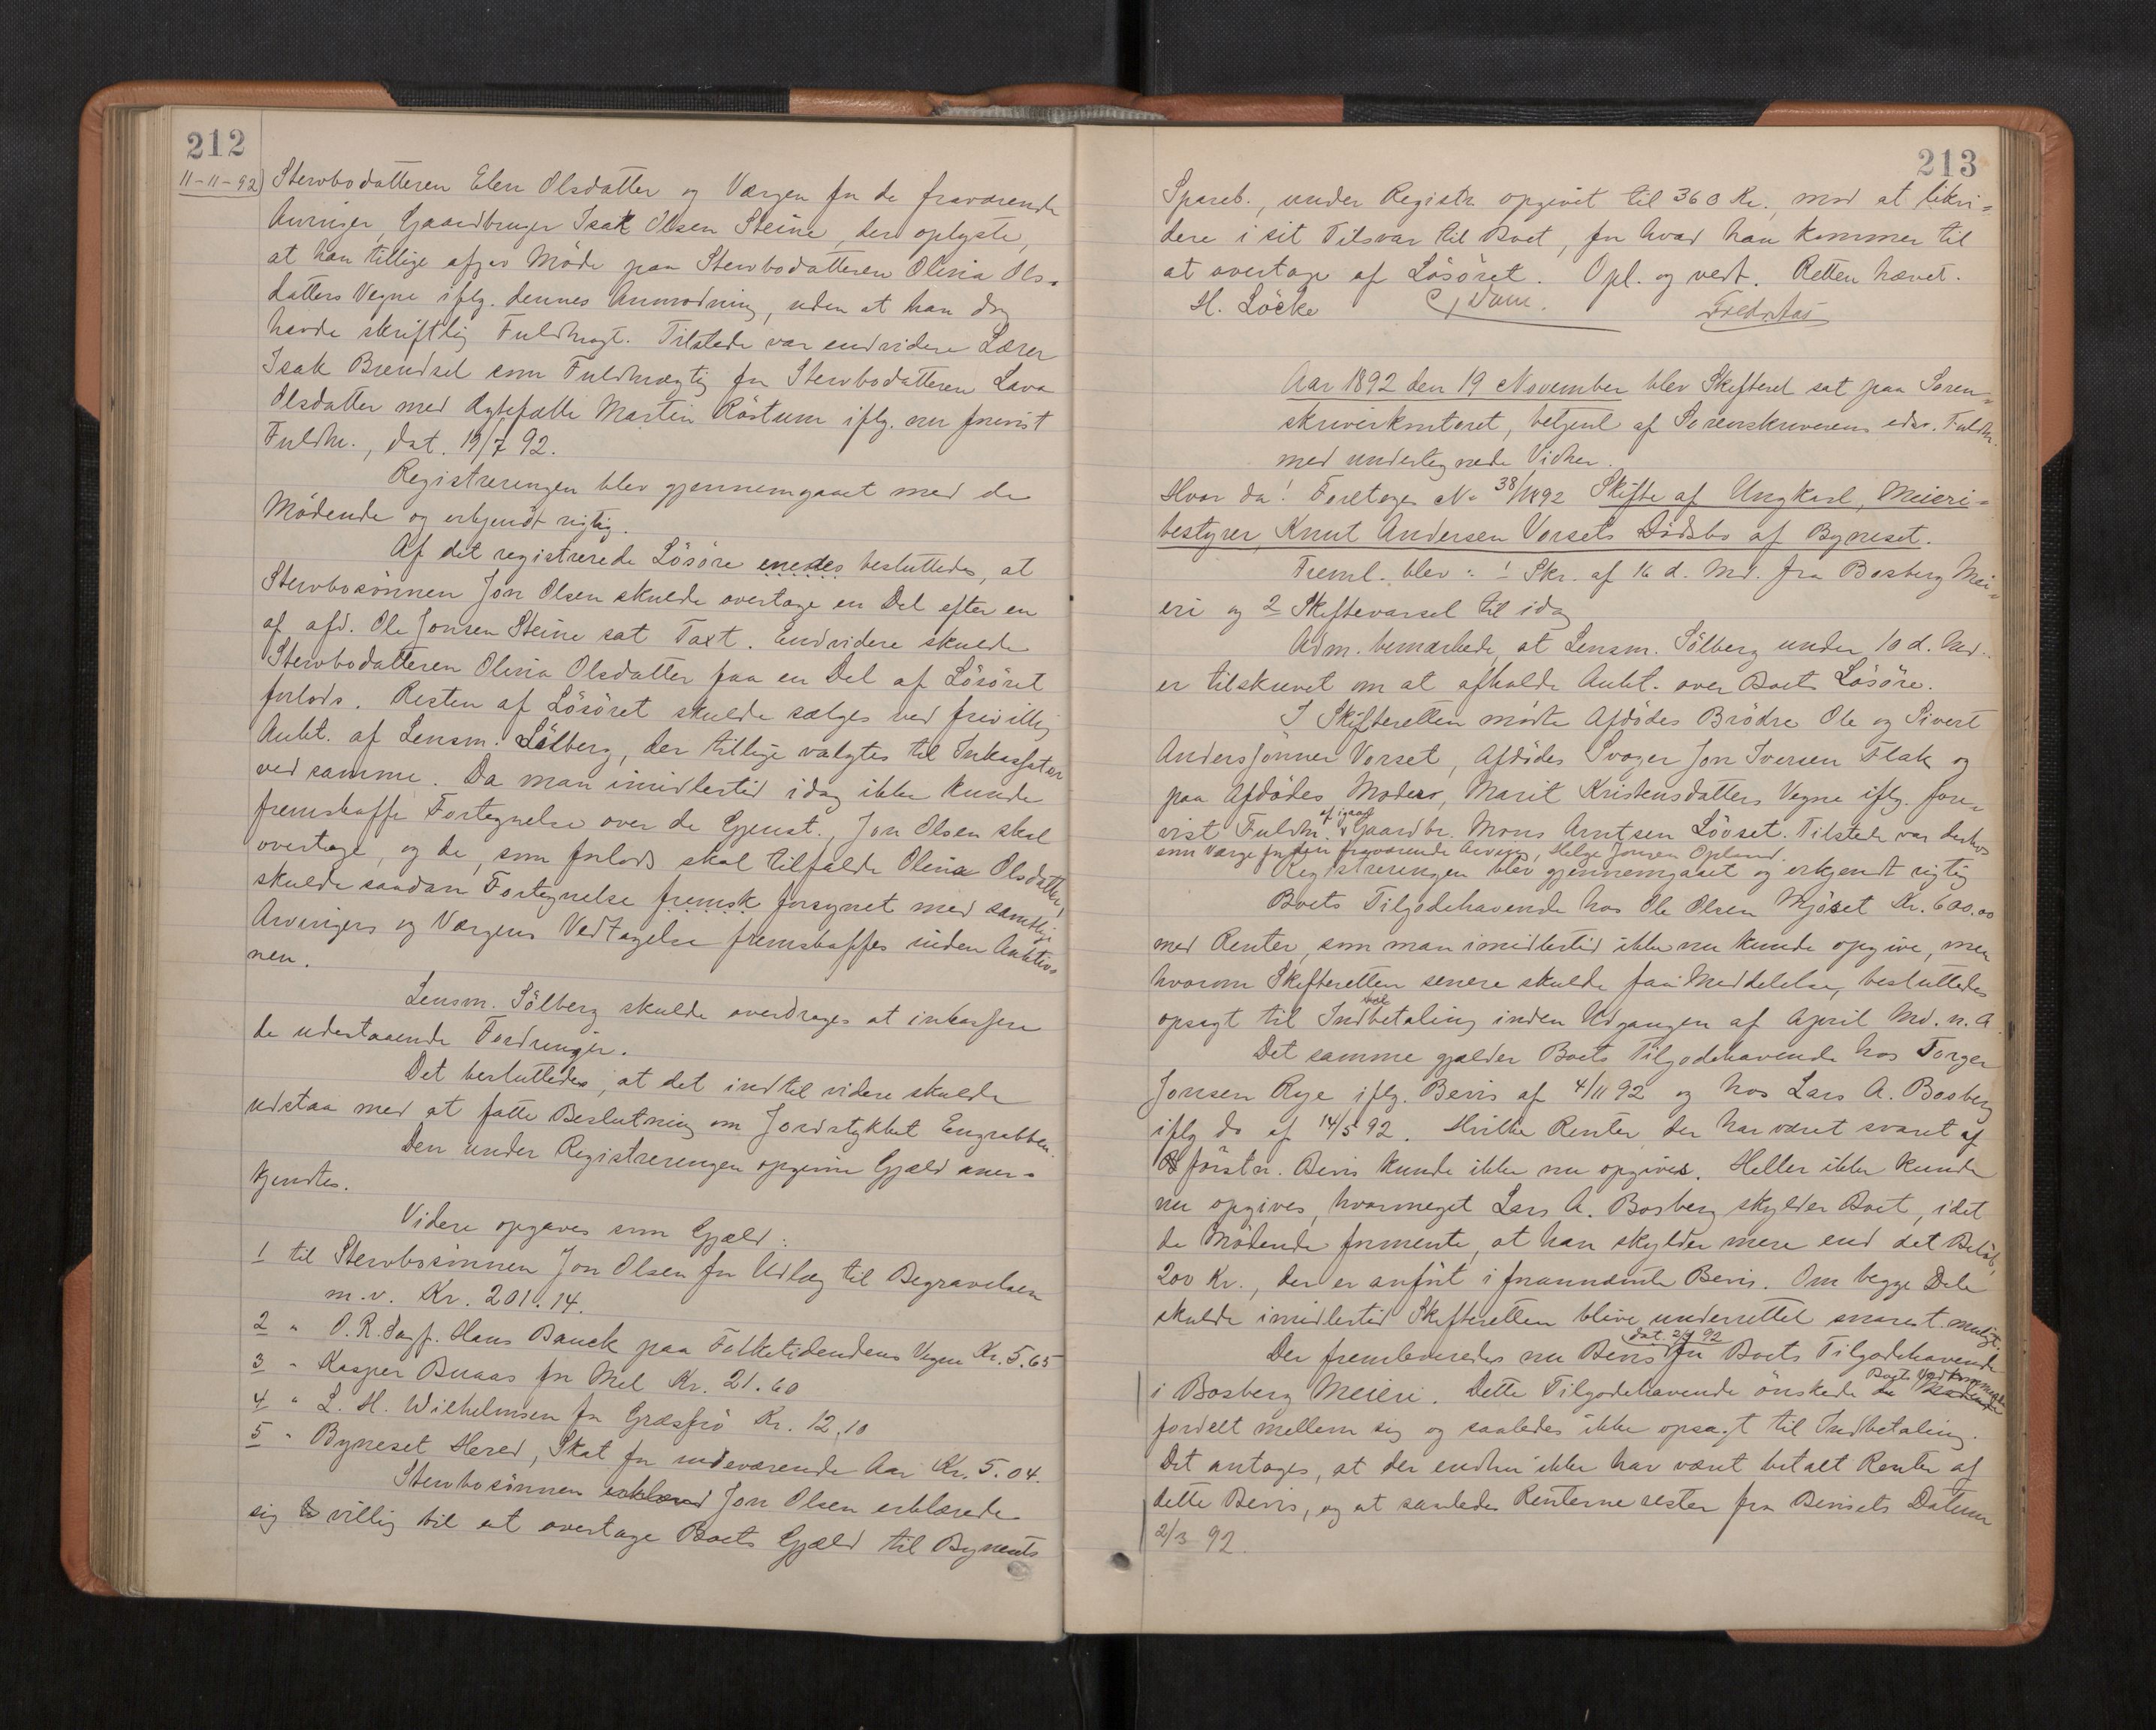 212
11-11-92
Stervbodatteren Elen Olsdatter og Værgen for de fraværende
Arvinger, Gaardbruger Isak Olsen Steine, der oplyste,
at han tillige afgav Møde paa Stervbodatteren Olina Ols-
datters Vegne iflg. dennes Anmodning, uden at han dog
havde skriftlig Fuldmagt. Tilstede var endvidere Lærer
Isak Brendsel som Fuldmægtig for Stervbodatteren Lava
Olsdatter med Ægtefælle Martin Röstum iflg. nu frevist
Fuldm., dat. 19/7 92.
Registreringen blev gjennemgaaet med de
Mödende og erkjendt rigtig.
Af det registrerede Lösöre enedes besluttedes, at
Stervbosönnen Jon Olsen skulde overtage en Del efter en
af afd. Ole Jonsen Steine sat Taxt. Endvidere skulde
Stervbodatteren Olina Olsdatter faa en Del af Lösöret
forlods. Resten af Lösöret skulde sælges ved frivillig
Aukt. af Lensm. Sölberg, der tillige valgtes til Inkassator
ved samme. Da man imidlertid idag ikke kunde
fremskaffe Fortegnelse over de Gjenst., Jon Olsen skal
overtage, og de, som forlods skal tilfalde Olina Olsdatter,
skulde saadan Fortegnelse fremsk forsynet med samtlige
Arvingers og Værgens Vedtagelse fremskaffes inden Auktio-
nen.
Lensm. Sölberg skulde overdrages at inkassere
de udestaaende Fordringer.
Det besluttedes, at det indtil videre skulde
udstaa med at fatte Beslutning om Jordstykket Engrabben.
Den under Registreringen opgivne Gjæld aner-
kjendtes.
Videre opgaves som Gjæld:
1 til Stervbosönnen Jon Olsen for Udlæg til Begravelsen
m.v. Kr. 201.14.
2 " O.R. Sagf. Hans Bauck paa Folketidendens Vegne Kr. 5.65
3 " Kasper Buaas for Mel Kr. 21.60
4 " L. H. Wilhelmsen for Græsfrö Kr. 12,10
5 " Byneset Hered, Skat for indeværende Aar Kr. 5.04.
Stervbosönnen erklæred Jon Olsen erklærede
sig villig til at overtage Boets Gjæld til Bynesets
213
Spareb., under Registr. opgivet til 360 Kr., mod at likvi-
dere i sit Tilsvar til Boet, for hvad han kommer til
at overtage af Lösöret. Opl. og vedt. Retten hævet.
H. Löcke
Aar 1892 den 19 November blev Skifteret sat paa Soren-
skriverkontoret, betjent af Sorenskriverens edsv. Fuldm.
med undertegnede Vidner.
Hvor da! Foretoges No 38/1892 Skifte af Ungkarl, Meieri-
bestyrer, Knut Andersen Vorsets Dödsbo af Byneset.
Freml. blev: 1 Skr. af 16 d. Md. fra Bosberg Mei-
eri og 2 Skiftevarsel til idag
Adm. bemærkede, at Lensm. Sölberg under 10 d. Md.
er tilskrevet om at afholde Aukt. over Boets Lösöre.
I Skifteretten mödte Afdödes Brödre Ole og Sivert
Anderssönner Vorset, Afdödes Svoger Jon Iversen Flak og
paa Afdödes Moders, Marit Kristensdatters Vegne iflg. fore-
vist Fuldm. af igaar Gaardbr. Mons Arntsen Lövset. Tilstede var derhos
som Værge for den fraværende Arving, Helge Jonsen Opland.
Registreringen blev gjennemgaaet og erkjendt rigtig
Boets Tilgodehavende hos Ole Olsen Mjöset Kr. 600.00
med Renter, som man imidlertid ikke nu kunde opgive, men
hvorom Skifteretten senere skulde faa Meddelelse, besluttedes
opsagt til Indbetaling inden Udgangen af April Md. n. A
Det samme gjælder Boets Tilgodehavende hos Torger
Jonsen Rye iflg. Bevis af 4/11 92 og hos Lars A. Bosberg
iflg do af 14/5 92. Hvilke Renter der har været svaret af
förstn. Bevis kunde ikke nu opgives. Heller ikke kunde
nu opgives, hvormeget Lars A. Bosberg skylder Boet, idet
de Mödende formente, at han skylder mere end det Belöb,
200 Kr., der er anfört i frannævnte Bevis. Om begge Dele
skulde imidlertid Skifteretten blive underrettet snarest muligt.
Der fremleveredes nu Bevis dat. 2/3 92 for Boets Tilgodehavende
i Bosberg Meieri. Dette Tilgodehavende önskede de Mödende Boets Vedkommende
fordelt mellem sig og saaledes ikke opsagt til Indbetaling.
Det antoges, at der endnu ikke har været betalt Renter af
dette Bevis, og at saaledes Renterne rester fra Bevisets Datum
2/3 92.